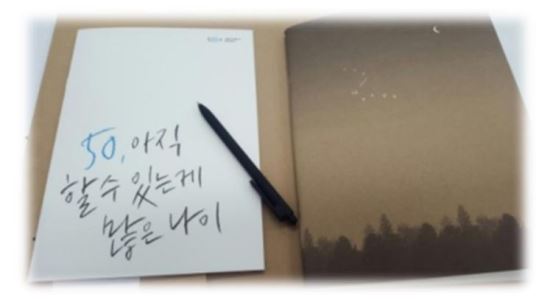 50, 아직
할 수 있는게
많은 나이